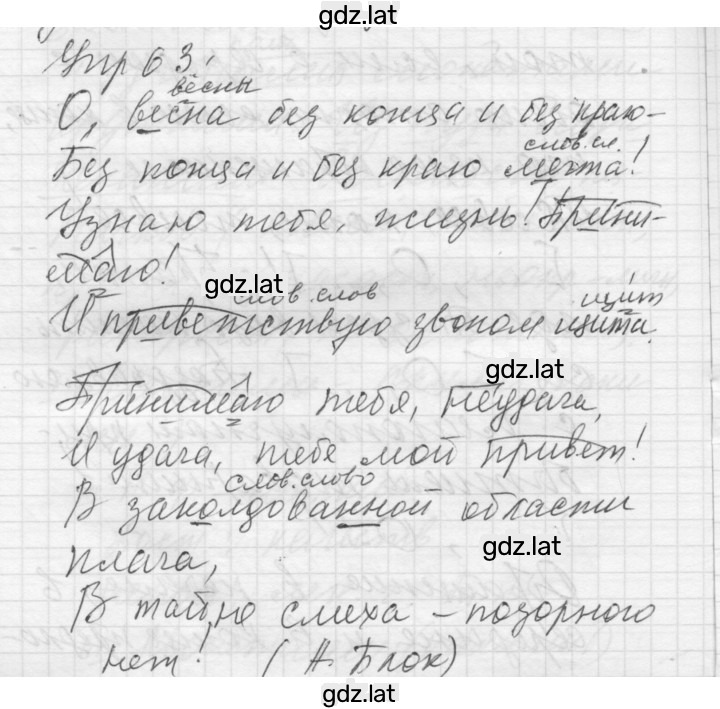 gdz.lat
Упр 63
вёсны
О, весна без конца и без краю-
слов.сл.
Без конца и без краю мечта!
Узнаю тебя, жизнь! Прини-
маю!
gdz.lat
слов.слов щит
И приветствую звоном щита.
gdz.lat
Принимаю тебя, неудача,
И удача, тебе мой привет!
слов.слово
В заколдованной области
gdz.lat
плача,
В тайне смеха - позорного
нет! (А. Блок)
gdz.lat